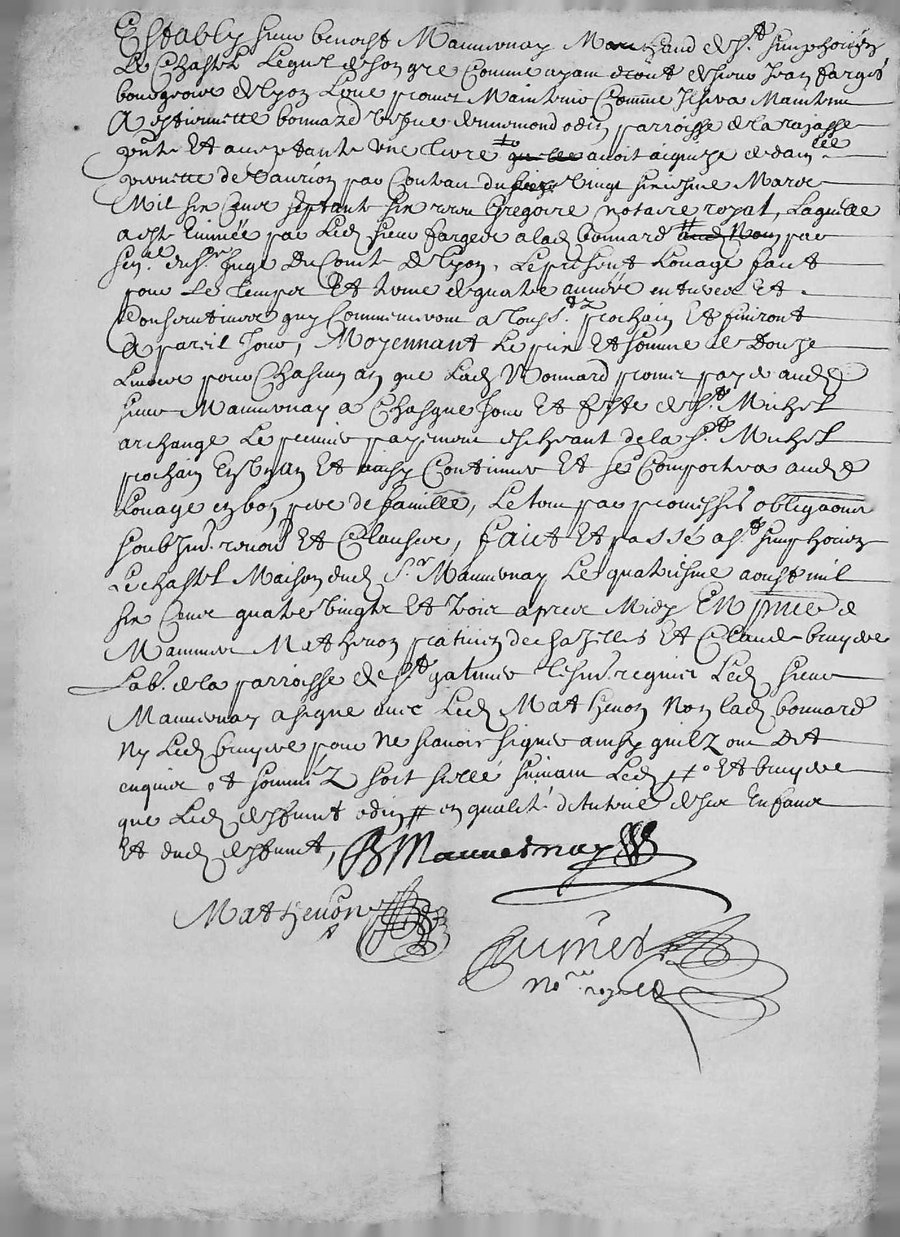 Establÿ sieur benoist Mauvernay Marchand de St simphorien
Le Chastel Lequel de son gre Comme ayant droit de sieur Jean farges
bourgeois de lyon Loue promet Maintenir Comme Jl sera Maintenu
A estiennette bonnard vefve de
odin parroisse de la rajasse
pnte Et acceptante une livre avoit de damlle
pierrette de par Contrat du vingt siziesme Mars
Mil six Cent septante six receu Gregoire notaire royal, Laquelle
a est par Led sieur farges a lad bonnard par
senᶜᵉ de Mr Juge Du Comté De lyon, Le present Louage fait
pour Le Temps Et terme de quatre année entieres Et
Consecutives quy Commenceront a Touss.tz prochain Et finiront
A pareil Jour, Moyennant Le prix Et somme de Douze
Livres pour Chascun an que Lad Bonnard promet payer aud
sieur Mauvernay a Chasque Jour Et feste de St Michel
archange Le premier payement escheant de la St Michel
prochain En un an Et ainsy Continuer Et se Comportera aud
Louage en bon pere de famille, Le tout par promesses obligaons
soubz renons Et Clauses, faict Et passé a St simphorien
Le chastel Maison dud Sr Mauvernay Le quatriesme aoust mil
six Cent quatre vingts Et trois apres Midy En pnce de
Matthenon praticien de chazelles Et Claude bruyere
Labr. de la parroisse de St galmier tesm. requis Led sieur
Mauvernay a signe avec Led Mathenon Non lad bonnard
Ny Led bruyere pour Ne scavoir signer ainsy quilz ont Dit
enquis et sommez soit sellé suivant Led Et bruyere
que Led deffunt odin en qualité de tutrice de ses Enfans
Et dud deffunt, B Mauvernay
Mathenon
nore royal